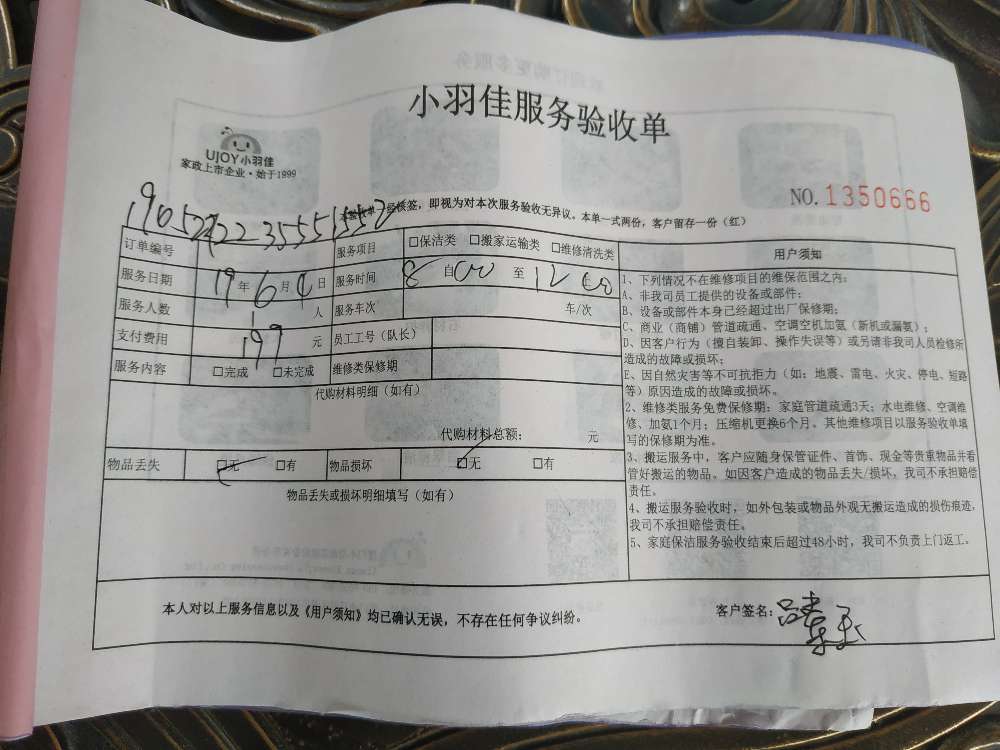 小羽佳服务验收单
UJOY小羽佳
家政上市企业·始于1999
NO.1350666
经核签，即视为对本次服务验收无异议。本单一式两份，客户留存一份（红）
订单编号
服务项目 □保洁类 □搬家运输类 □维修清洗类
服务日期 19年6月 日 服务时间 8自00至12 00
服务人数 1人 服务车次 车/次
支付费用 199元 员工工号（队长）
服务内容 □完成 □未完成 维修类保修期
代购材料明细（如有）
代购材料总额： 元
物品丢失 □无 □有 物品损坏 □无 □有
物品丢失或损坏明细填写（如有）
用户须知
1、下列情况不在维修项目的维保范围之内：
A、非我司员工提供的设备或部件；
B、设备或部件本身已经超过出厂保修期；
C、商业（商铺）管道疏通、空调空机加氨（新机或漏氨）；
D、因客户行为（擅自装卸、操作失误等）或另请非我司人员检修所
造成的故障或损坏；
E、因自然灾害等不可抗拒力（如：地震、雷电、火灾、停电、短路
等）原因造成的故障或损坏。
2、维修类服务免费保修期：家庭管道疏通3天；水电维修、空调维
修、加氨1个月；压缩机更换6个月。其他维修项目以服务验收单填
写的保修期为准。
3、搬运服务中，客户应随身保管证件、首饰、现金等贵重物品并看
管好搬运的物品。如因客户造成的物品丢失/损坏，我司不承担赔偿
责任。
4、搬运服务验收时，如外包装或物品外观无搬运造成的损伤痕迹，
我司不承担赔偿责任。
5、家庭保洁服务验收结束后超过48小时，我司不负责上门返工。
本人对以上服务信息以及《用户须知》均已确认无误，不存在任何争议纠纷。
客户签名：